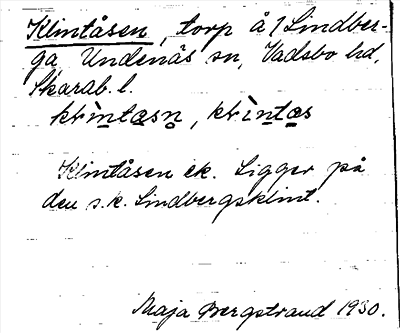 Klintåsen, torp å 1 Lindber-
ga, Undenäs sn, Vadsbo hd,
Skarab. l.
klìntasn, klìntas
Klintåsen ek. Ligger på
den s.k. Lindbergsklint.
Maja Bergstrand 1930.